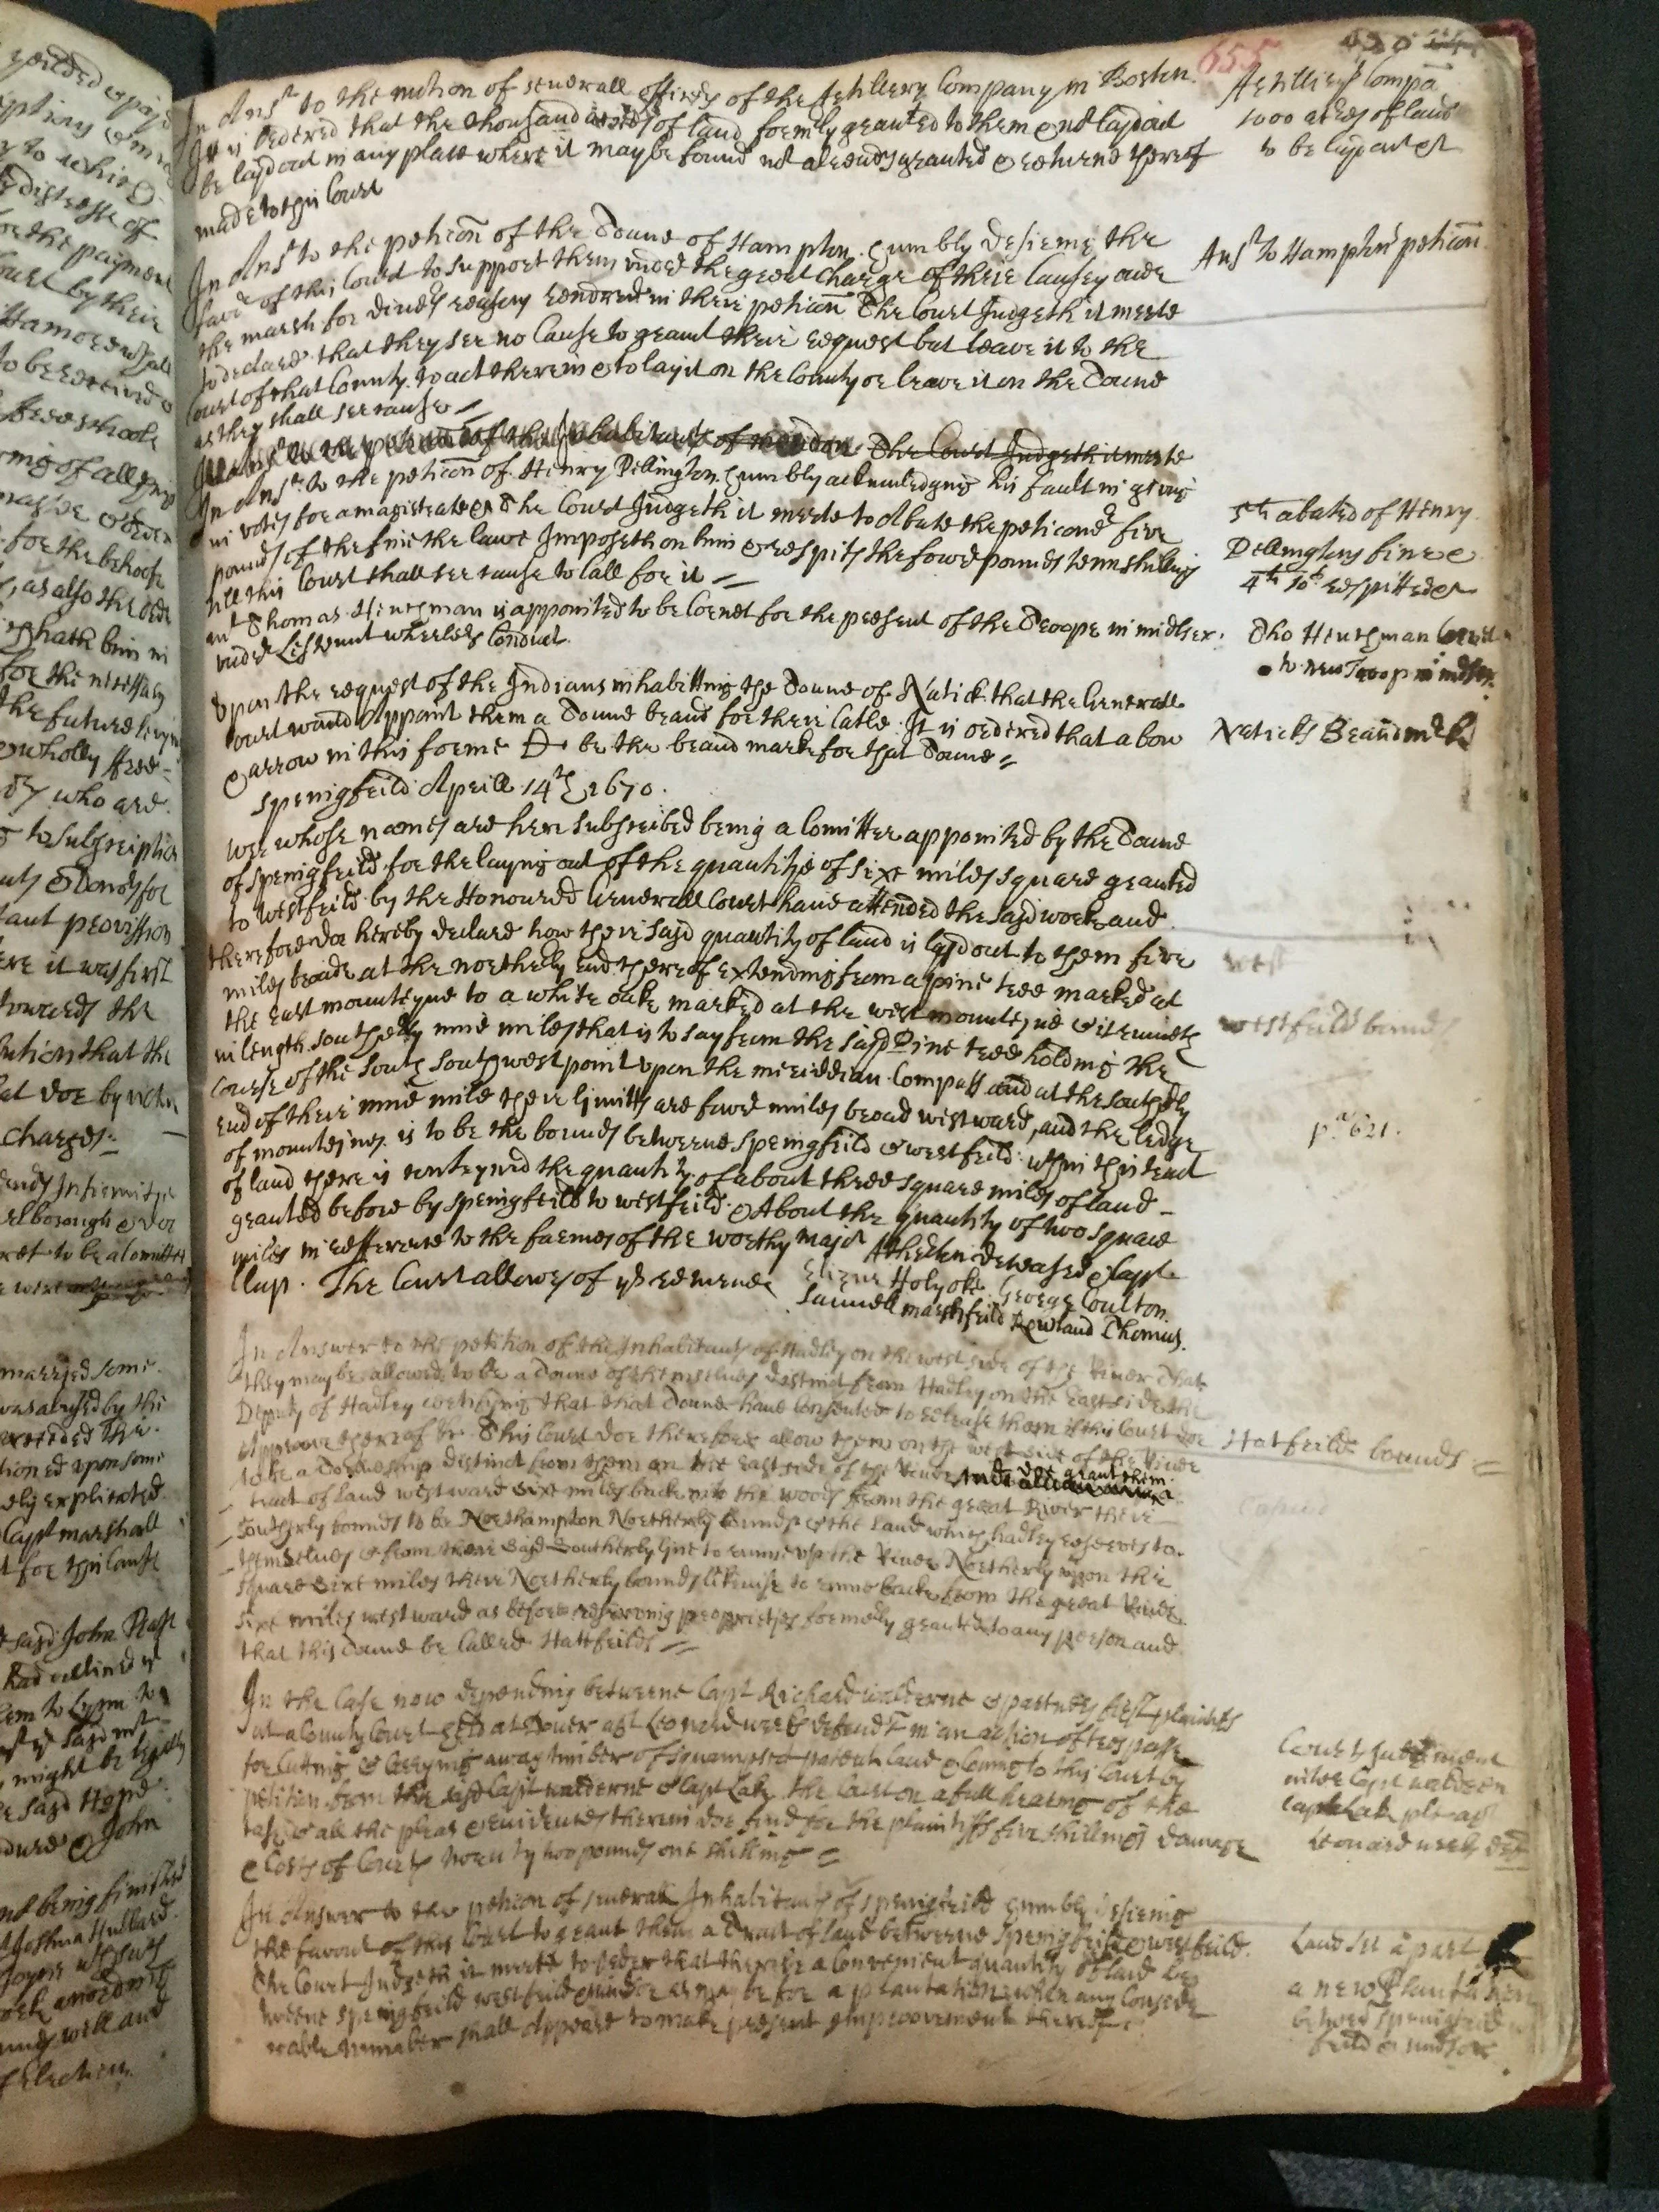 655
In Ansr to the motion of severall officers of the Artillery Company in Boston.
It is Ordered that the thousand acres of land formerly graunted to them & not laydout
be laydout in any place where it may be found not already graunted & returne thereof
made to this Court
Artillery Compā
1000 acres of land
to be laydout &c
In Ansr to the peticon of the Toune of Hampton, humbly desireing the
favor of this Court to support them under the great Charge of their Causey over
the marsh for divers reasons rendred in their peticon The Court Judgeth it meete
to declare that they see no Cause to graunt their request but leave it to the
Court of that County to act therein & to lay it on the County or leave it on the Toune
as they shall see cause
Ansr to Hamptons peticon
In Ansr to the peticon of the Inhabitants of The Court Judgeth it meete
In Ansr to the peticon of Henry Dillington humbly acknowledging his fault in giving
in votes for a magistrate &c The Court Judgeth it meete to Abate the peticoner five
pounds of the fine the lawe Imposeth on him & respits the fower pounds tenn shillings
till this Court shall see cause to call for it
5ll abated of Henry
Dillingtons fine &
4ll 10s respitted &c
Thomas Henchman is appointed to be Cornet for the present of the Troope in midlsex.
under Leftennt wheelers Conduct.
Tho Henchman Cornet
to new Troop in midlsex
Upon the request of the Indians inhabitting the Toune of Natick that the Generall
Court would Appoint them a Toune brand for their Catle. It is ordered that a bow
& arrow in this forme be the brand marke for that Toune
Naticks Brandmrk
Springfeild Aprill 14th 1670.
wee whose names are here subscribed being a Comittee appointed by the Toune
of Springfeild for the laying out of the quantitje of sixe miles square graunted
to westfeild by the Honoured Generall Court have attended the sajd worke and
therefore doe hereby declare how their sajd quantity of land is lajd out to them five
miles broade at the northerly end thereof extending from a pine tree marked at
the East mounteyne to a white oake marked at the west mounteyne & it runneth
in length southerly nine miles that is to say from the sajd Pine tree holding the
Course of the South Southwest point upon the meriddian Compass and at the southerly
end of their nine mile their ljmitts are fower miles broad westward, and the ledge
of mounteines is to be the bounds betweene Springfeild & westfeild: wthin this tract
of land there is conteyned the quantity of about three square miles of land
graunted before by Springfeild to westfeild & About the quantity of two square
miles in refference to the farmes of the worthy major Atherton deceased & Capt
Clap. The Court allowes of ys returne
Elizur Holyoke. George Coulton.
Samuell marshfeild Rowland Thomas.
westfeild bounds
pa 621.
In Answer to the petition of the Inhabitants of Hadley on the west side of the River that
they may be allowed to be a Toune of themselves destinct from Hadley on the East side the
Deputy of Hadley certifying that that Toune have consented to release them if this Court doe
approove thereof &c. This Court doe therefore allow them on the west side of the River
to be a Towneship distinct from them on the East side of the River and doe grant them a
tract of land westward sixe miles backe into the woods from the great River their
Southerly bounds to be Northampton Northerly bounds & the Land which hadley reserves to
themselves & from their sajd Southerly ljne to runne up the River Northerly upon the
square sixe miles their Northerly bounds likewise to runne backe from the great River
sixe miles westward as before reserving proprietjes formerly graunted to any person and
that this Toune be Called Hattfeild
Hatfeilds bounds
In the Case now depending betweene Capt Richard walderne & partners first plaintiffs
at a County Court held at Dover agt Leonard weeks defendt in an action of trespasse
for Cutting & Carrying away timber of Squamscot patent land & Coming to this Court by
petition from the sajd Capt walderne & Capt Lake the Court on a full hearing of the
case & all the pleas & evidences therein doe find for the plaintiffs five shillings damage
& Costs of Courts twenty two pounds one shilling
Courts Judgement
in the Capt waldern
Capt Lake plt agt
Leonard weeks deft
In Answer to the peticon of severall Inhabitants of Springfeild humbly desireing
the favour of this Court to graunt them a Tract of land betweene Springfeild & westfeild.
The Court Judgeth it meete to order that there be a Convenient quantity of land be-
tweene Springfeild westfeild & windsor as may be for a plantation when any Conside
rable number shall Appeare to make present improovement thereof
Land set apart
a new Plantation
betweene Spring
feild & windsor